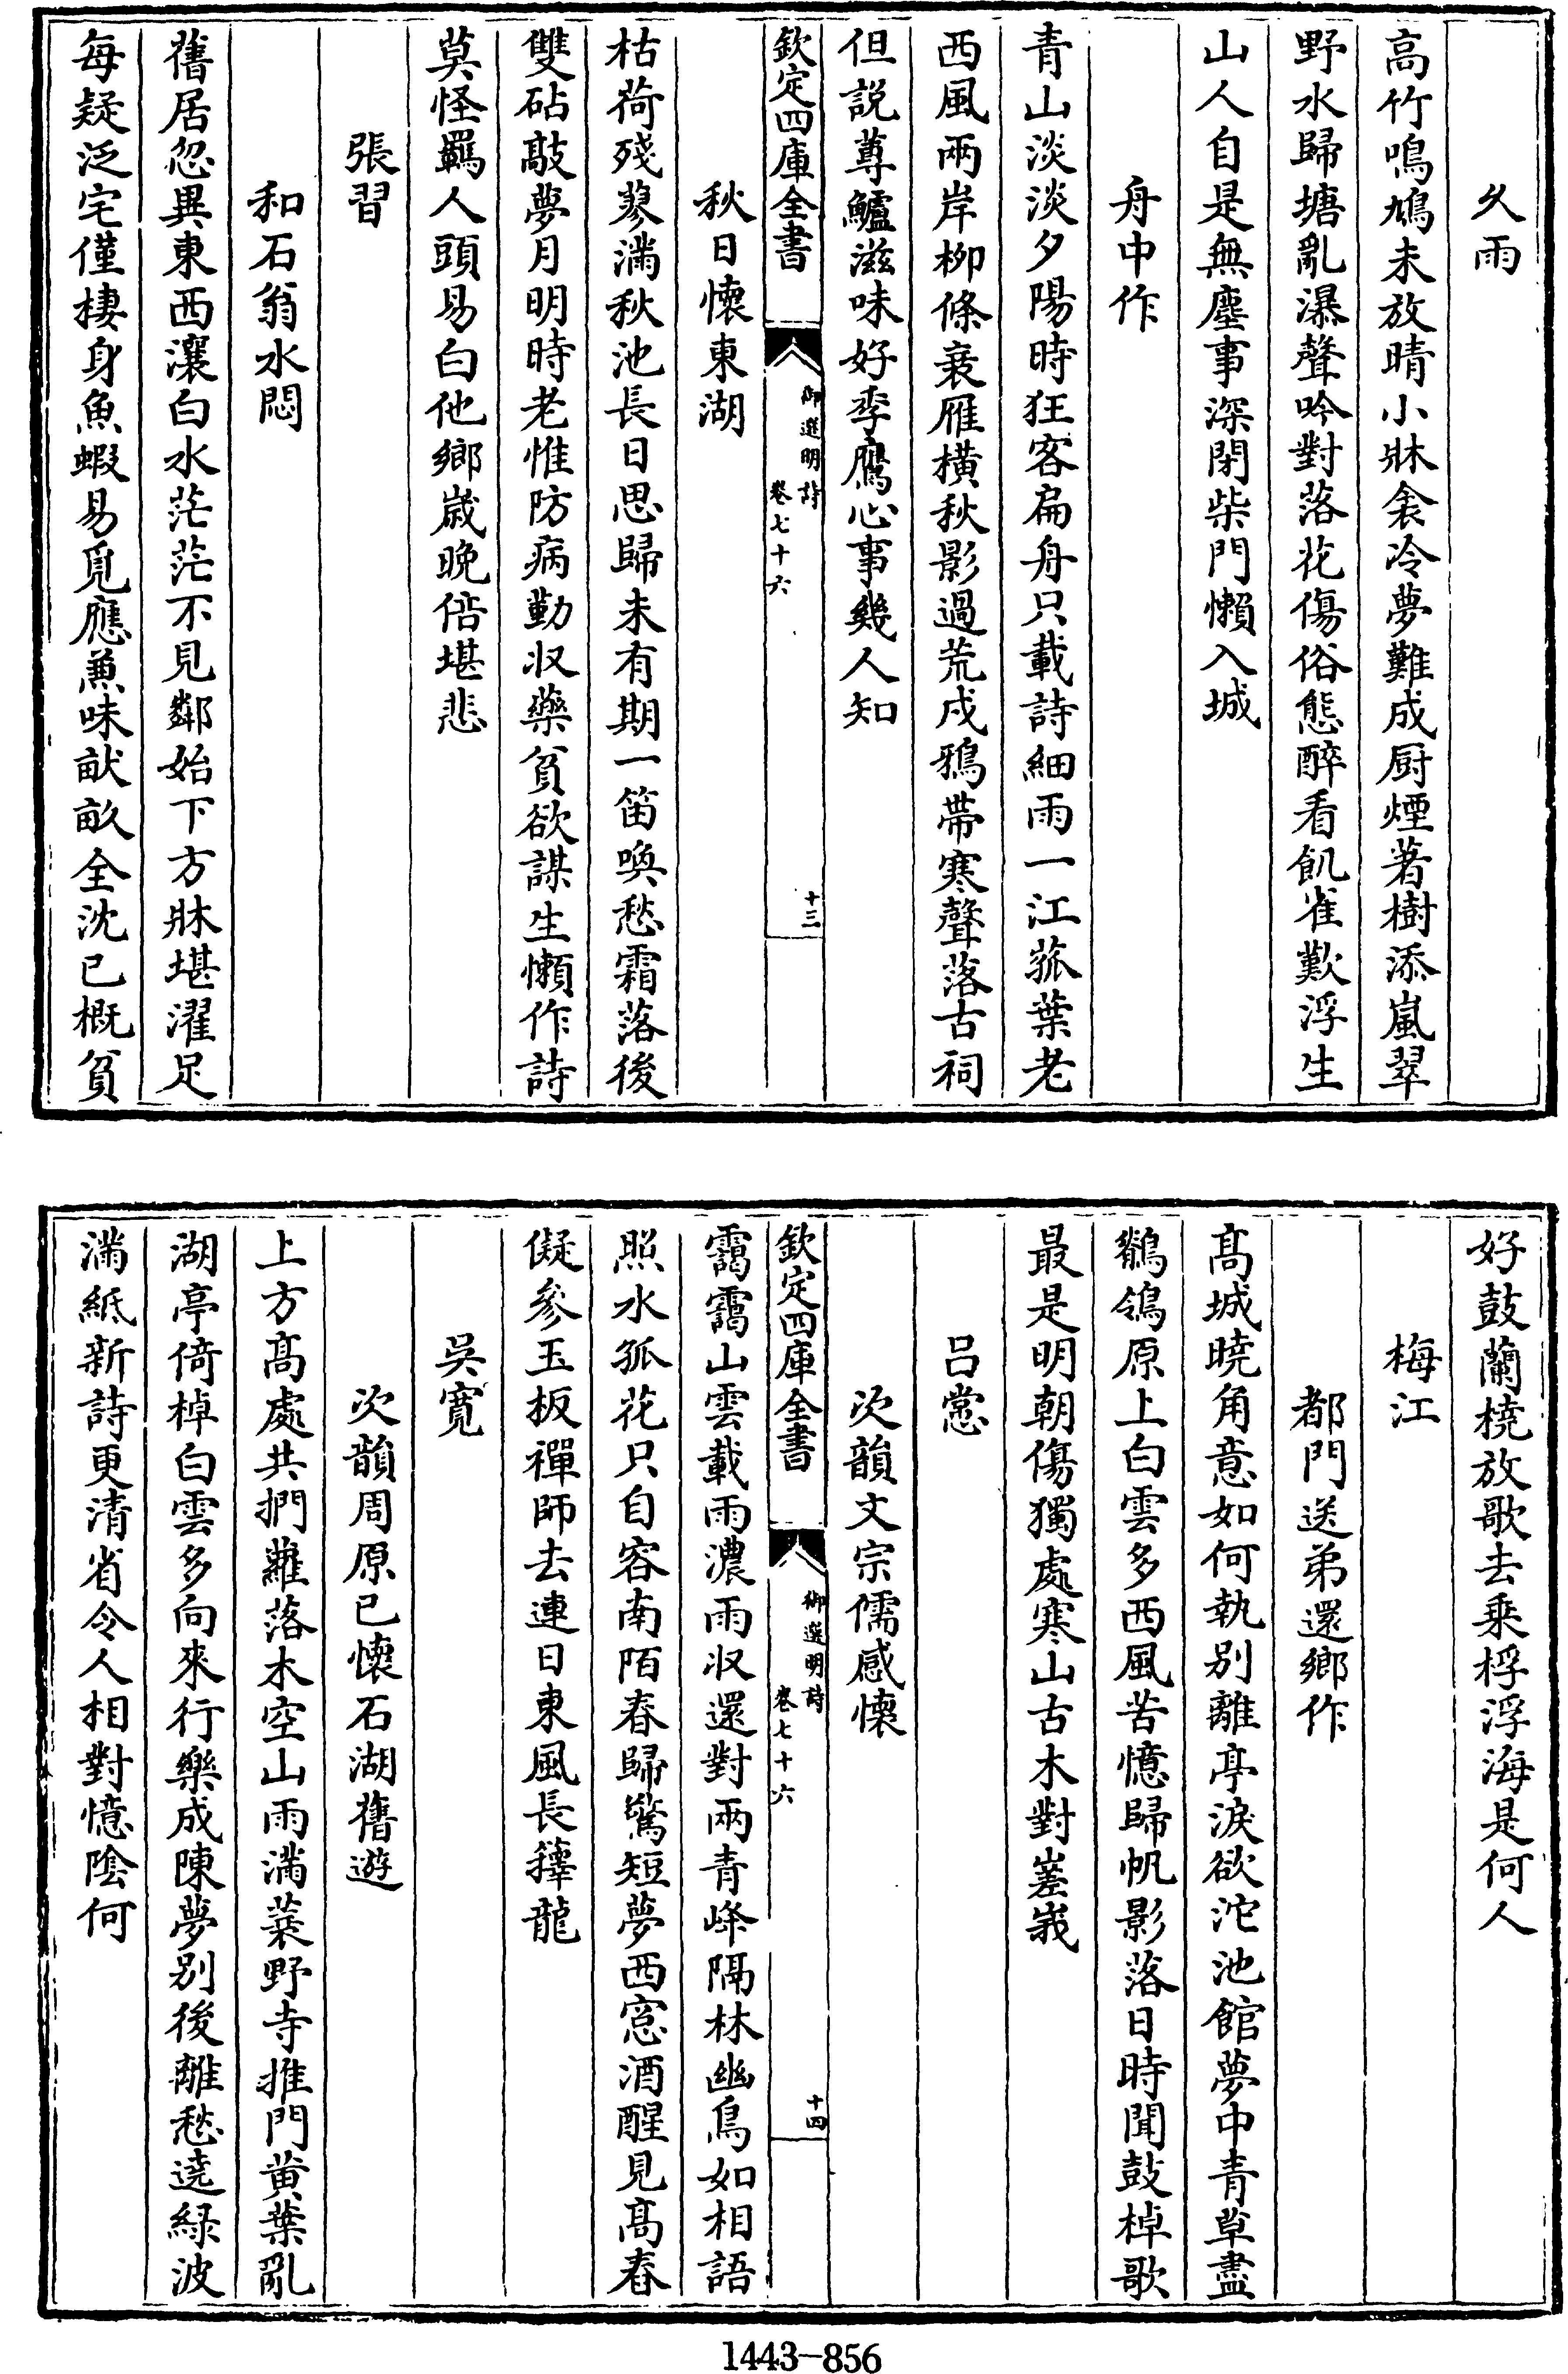 久雨
高竹鳴鳩未放晴小牀衾冷夢難成厨煙著樹添嵐翠
野水歸塘亂瀑聲吟對落花傷俗態醉看飢雀歎浮生
山人自是無塵事深閉柴門懶入城
舟中作
青山淡淡夕陽時狂客扁舟只載詩細雨一江菰葉老
西風兩岸柳條衰雁横秋影過荒戍鴉帶寒聲落古祠
但説蓴鱸滋味好季鷹心事幾人知
欽定四庫全書
御選明詩
卷七十六
十三
秋日懷東湖
枯荷殘蓼滿秋池長日思歸未有期一笛喚愁霜落後
雙砧敲夢月明時老惟防病勤收藥貧欲謀生懶作詩
莫怪羈人頭易白他鄉嵗晚倍堪悲
張習
和石翁水悶
舊居忽異東西瀼白水茫茫不見鄰始下方牀堪濯足
每疑泛宅僅棲身魚蝦易覓應兼味畎畝全沈已概貧
好鼓蘭橈放歌去乘桴浮海是何人
梅江
都門送弟還鄉作
髙城曉角意如何執别離亭淚欲沱池館夢中青草盡
鶺鴒原上白雲多西風苦憶歸帆影落日時聞鼓棹歌
最是明朝傷獨處寒山古木對嵳峩
吕㦂
次韻文宗儒感懷
欽定四庫全書
御選明詩
卷七十六
十四
靄靄山雲載雨濃雨收還對兩青峰隔林幽鳥如相語
照水孤花只自容南陌春歸驚短夢西窓酒醒見髙舂
儗參玉板禪師去連日東風長籜龍
吳寛
次韻周原已懷石湖舊遊
上方髙處共捫蘿落木空山雨滿蓑野寺推門黄葉亂
湖亭倚棹白雲多向來行樂成陳夢别後離愁遶緑波
滿紙新詩更清省令人相對憶陰何
1443-856